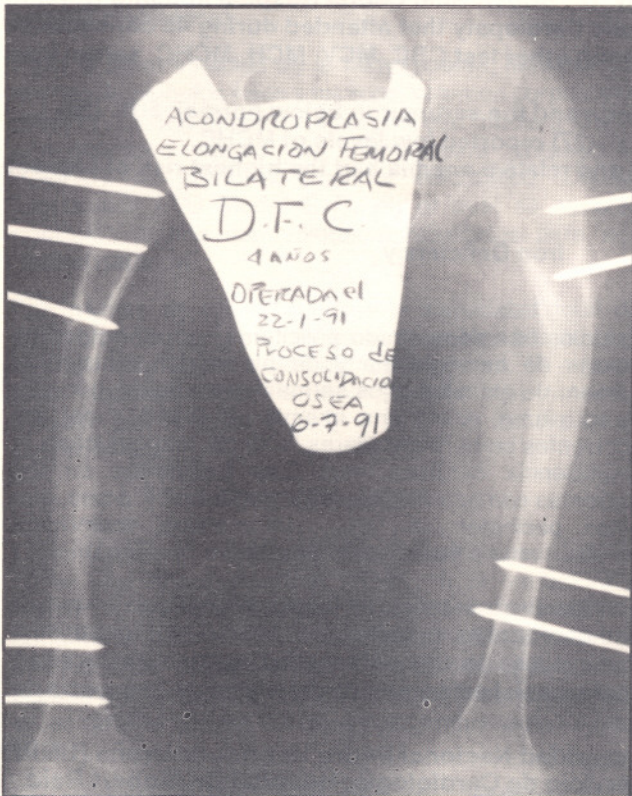 ACONDROPLASIA
ELONGACION FEMORAL
BILATERAL
D.F.C.
4 AÑOS
OPERADA el
22-1-91
PROCESO de
CONSOLIDACION
OSEA
6-7-91